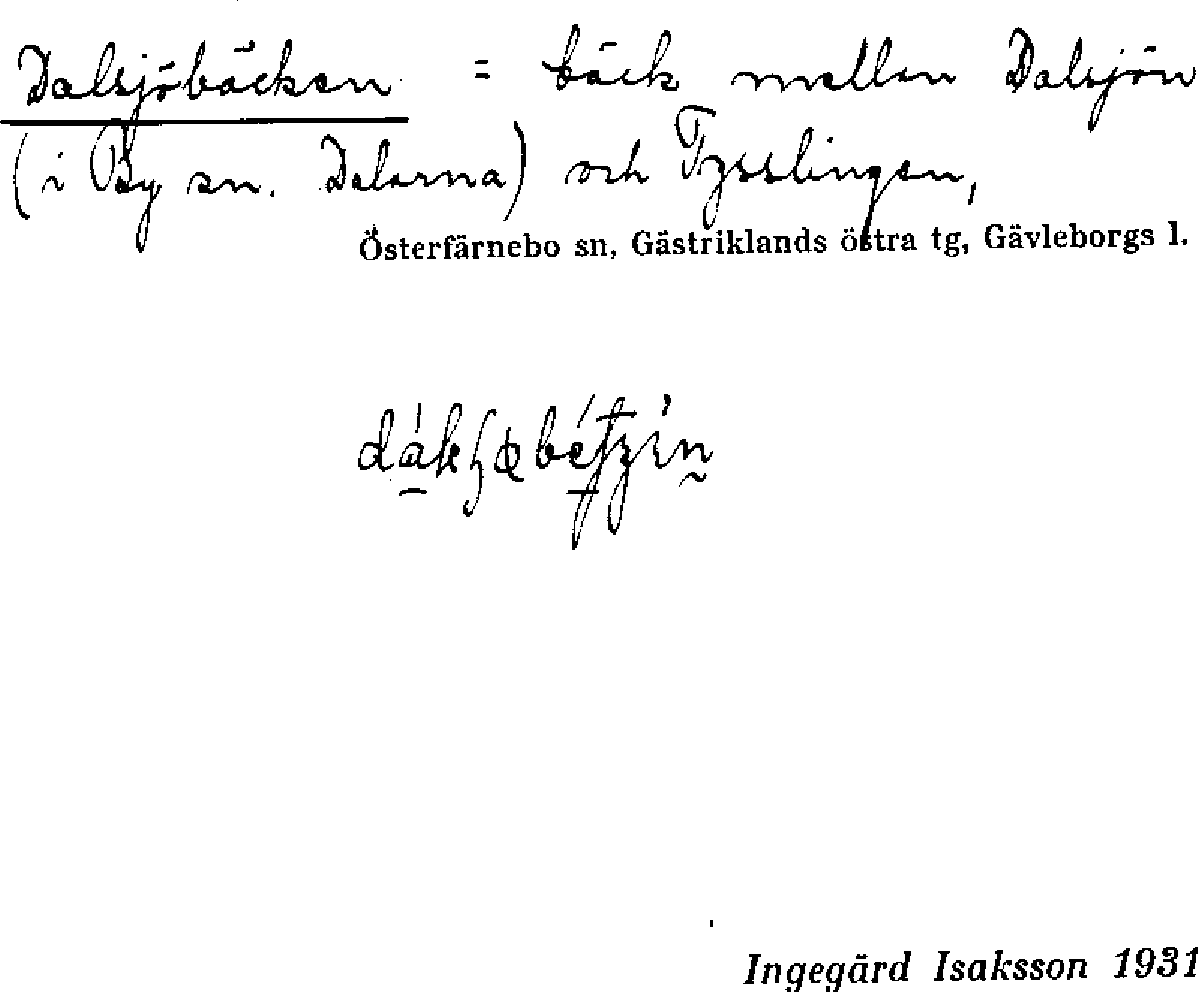 Dalsjöbäcken = bäck mellan Dalsjön
(i By sn. Dalarna) och Fysslingen,
Österfärnebo sn, Gästriklands östra tg, Gävleborgs l.
Ingegärd Isaksson 1931